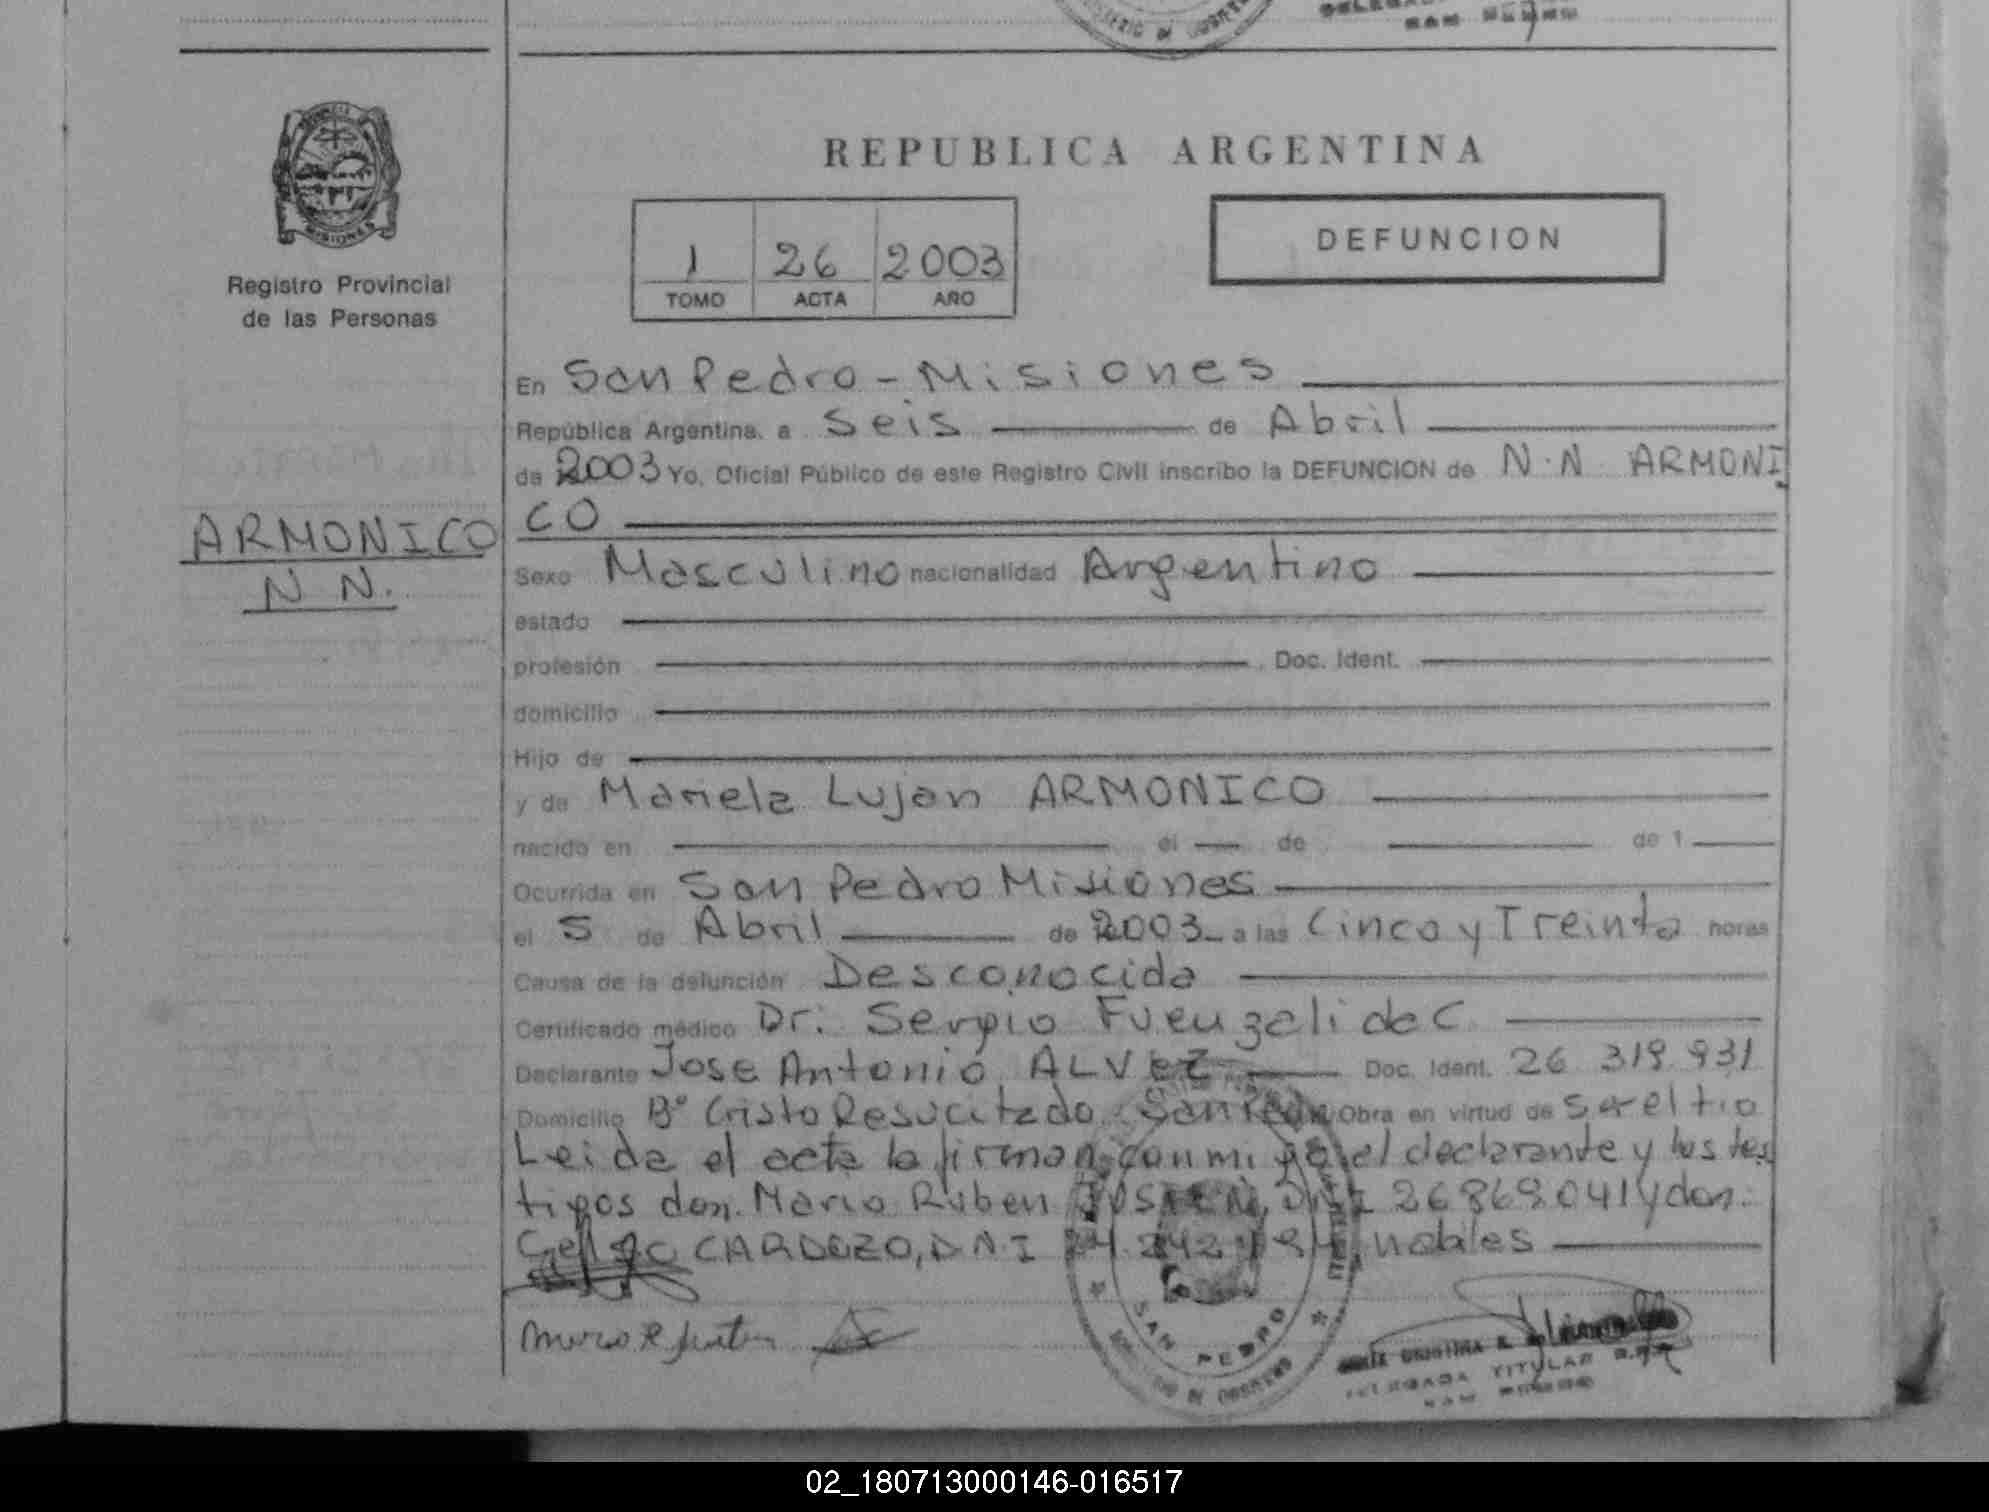 MINISTERIO DE GOBIERNO
SAN PEDRO
PROVINCIA DE
MISIONES
Registro Provincial
de las Personas
ARMONICO
N N.
REPUBLICA ARGENTINA
1 26 2003
TOMO ACTA AÑO
DEFUNCION
En San Pedro - Misiones
República Argentina, a Seis de Abril
de 2003 Yo, Oficial Público de este Registro Civil inscribo la DEFUNCION de N.N ARMONI
CO
Sexo Masculino nacionalidad Argentino
estado
profesión Doc. Ident.
domicilio
Hijo de
y de Mariela Lujan ARMONICO
nacido en el de de 1
Ocurrida en San Pedro Misiones
el 5 de Abril de 2003 a las Cinco y Treinta horas
Causa de la defunción Desconocida
Certificado médico Dr. Sergio Fuenzalida C.
Declarante Jose Antonio ALVEZ Doc. Ident. 26.319.931
Domicilio Bº Cristo Resucitado. San Pedro Obra en virtud de ser el tio
Leida el acta la firman conmigo el declarante y los tes
tigos don. Mario Ruben JUSTEN, DNI 26869041 y don.
CARDOZO, D.N.I habiles
SAN PEDRO
MINISTERIO DE GOBIERNO
CRISTINA
DELEGADA TITULAR R.P.P.
SAN PEDRO
02_180713000146-016517